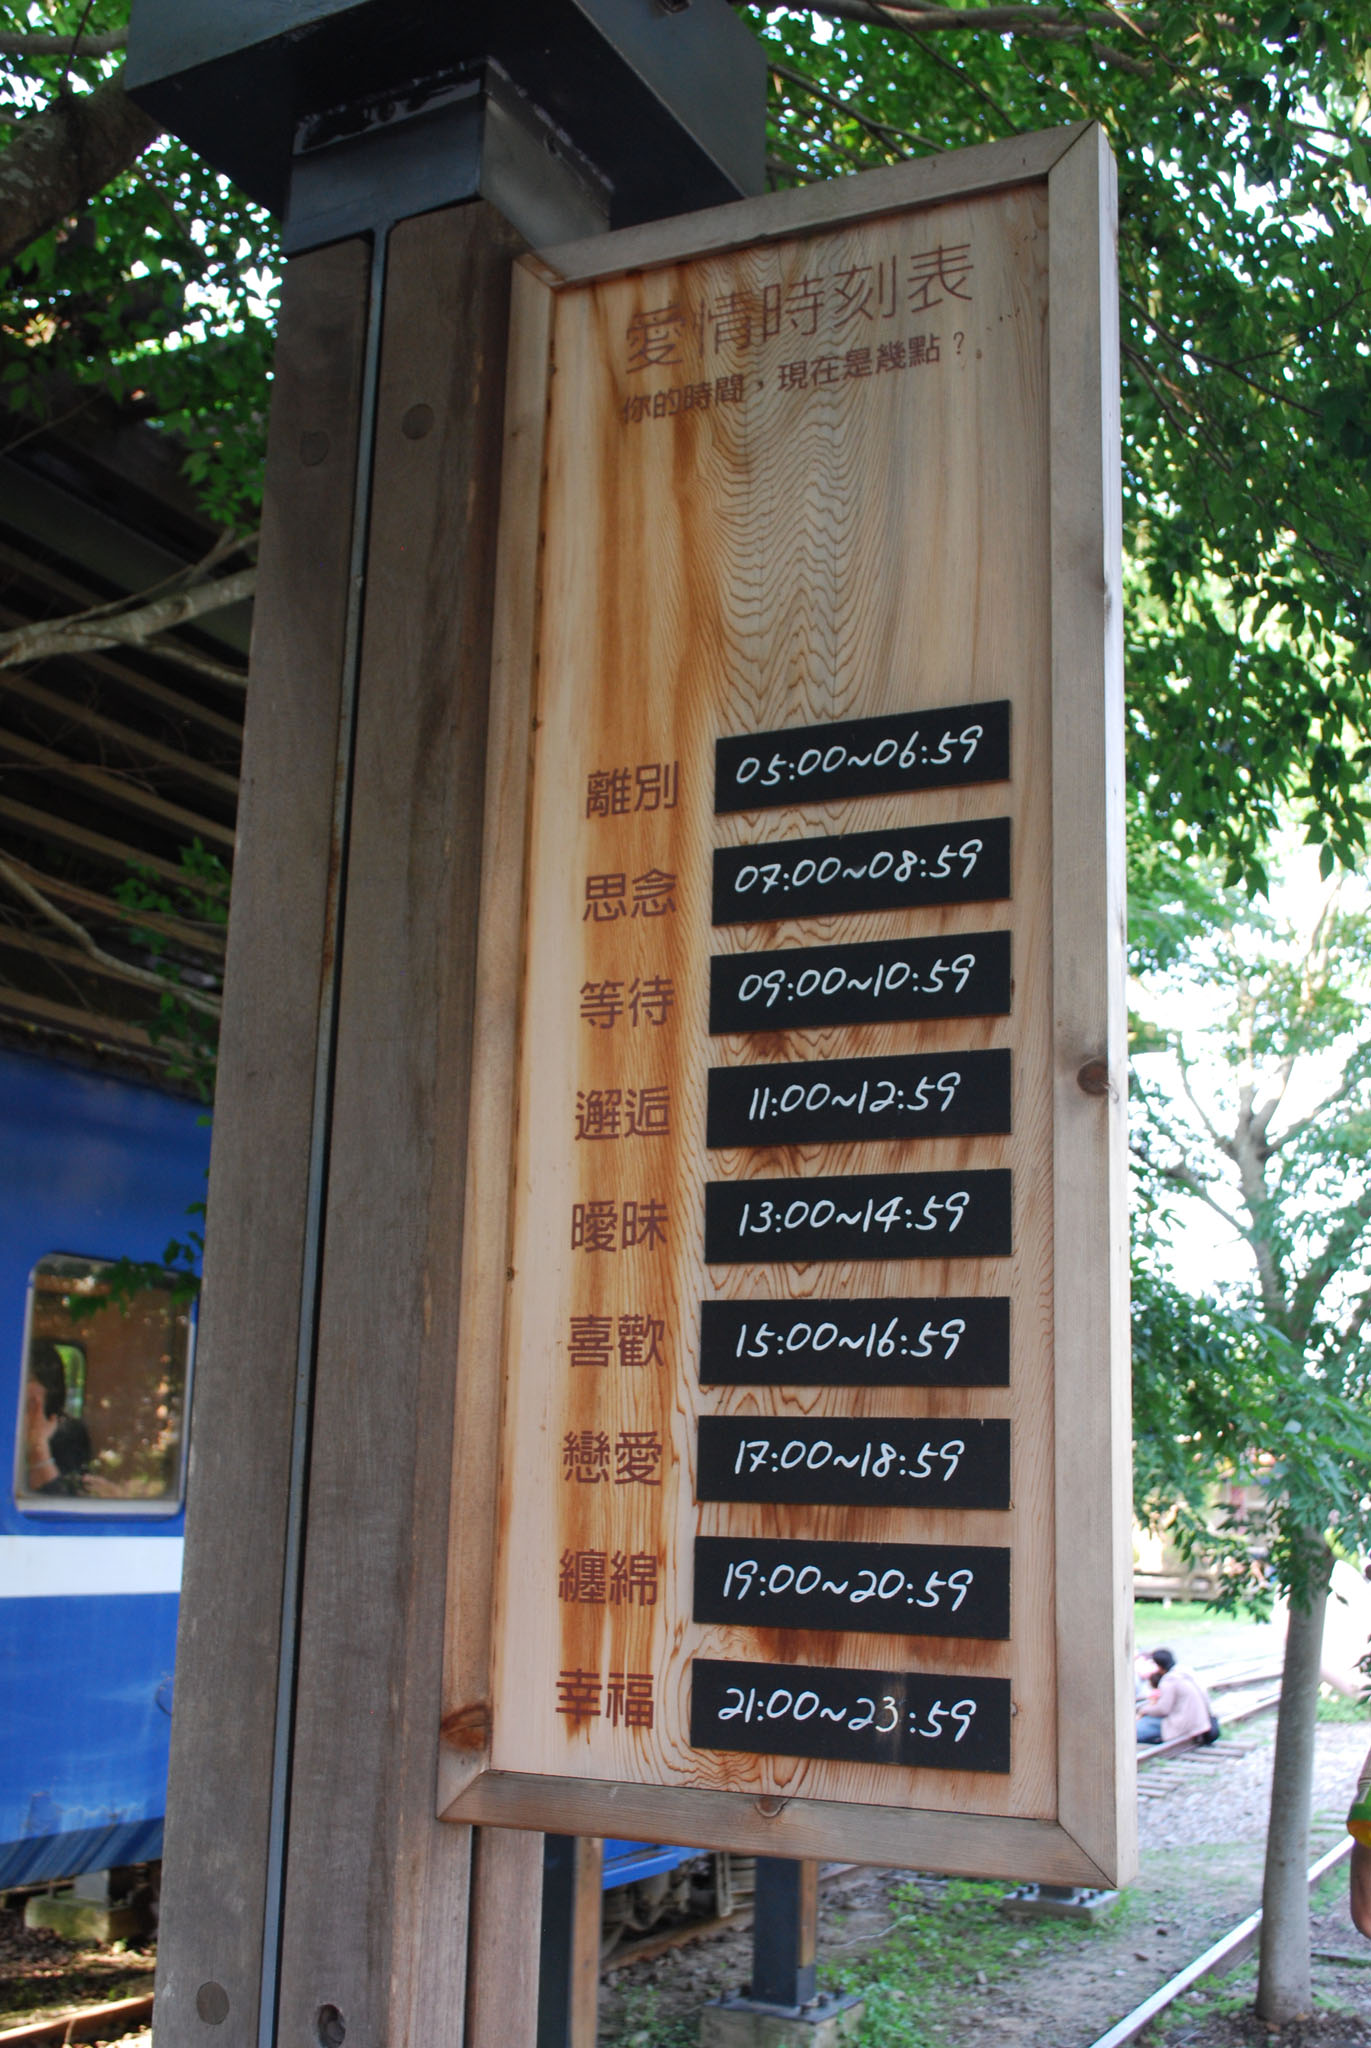 愛情時刻表
你的時間，現在是幾點？
離別 05:00~06:59
思念 07:00~08:59
等待 09:00~10:59
邂逅 11:00~12:59
曖昧 13:00~14:59
喜歡 15:00~16:59
戀愛 17:00~18:59
纏綿 19:00~20:59
幸福 21:00~23:59